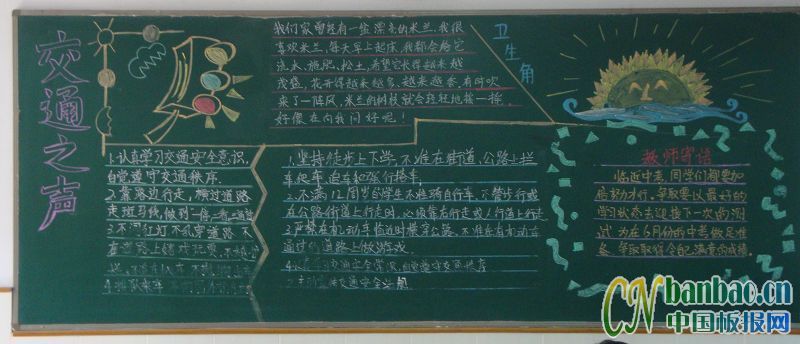 交通之声
我们家曾经有一盆漂亮的米兰,我很
喜欢米兰,每天早上起床,我都会给它
浇水、施肥、松土,希望它长得越来越
茂盛,花开得越来越多,越来越香,有时吹
来了一阵风,米兰的树枝就会轻轻地摇一摇,
好像在向我问好呢!
卫生角
1.认真学习交通安全意识,
自觉遵守交通秩序.
2.靠路边行走,横过道路
走斑马线,做到一停二看三通过
3.不闯红灯不乱穿道路 不
在道路上嬉戏玩耍,不
1.坚持徒步上下学,不准在街道、公路上拦
车爬车,追车和强行搭车;
2.不满12周岁的学生不准骑自行车,不警步行或
在公路街道上行走时,必须靠右行走或人行道上行走
3.严禁在机动车临近时横穿公路,不准在有机动车
通过的道路上做游戏
4.交通安全常识,自觉遵守交通秩序
交通安全法规
教师寄语
临近中考,同学们都要加
倍努力才行,争取要以最好的
学习状态去迎接下一次的测
试,为在6月份的中考做足准
备,争取取得令自己满意的成绩.
CN banbao.cn
中国板报网